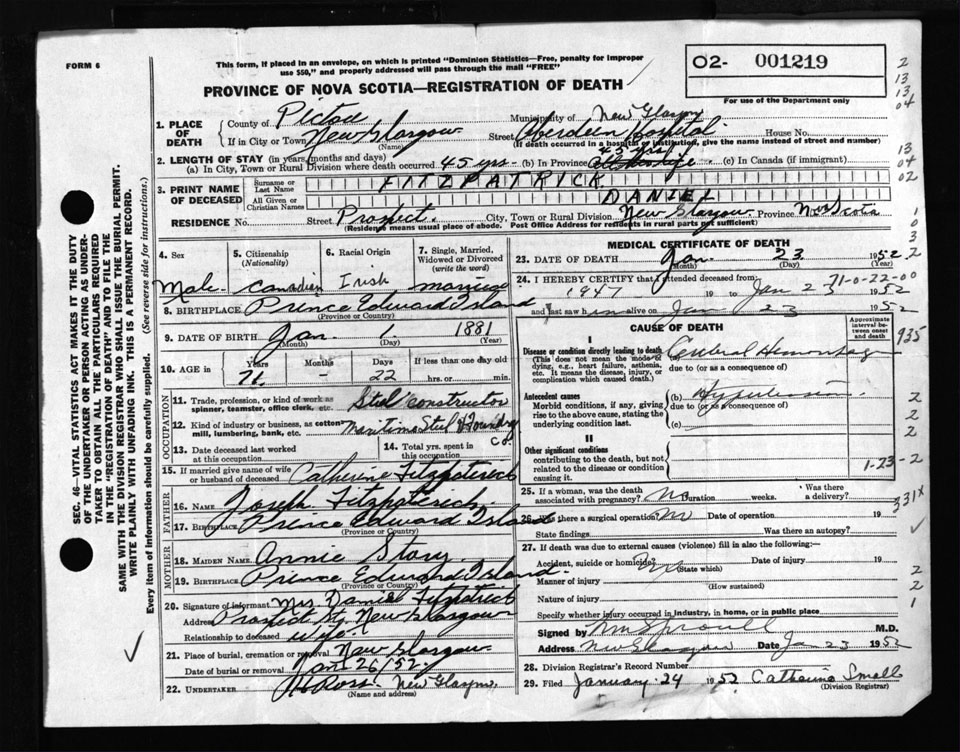 FORM 6
This form, if placed in an envelope, on which is printed "Dominion Statistics—Free, penalty for improper
use $50," and properly addressed will pass through the mail "FREE"
O2- 001219
For use of the Department only
PROVINCE OF NOVA SCOTIA—REGISTRATION OF DEATH
1. PLACE OF DEATH
County of Pictou Municipality of New Glasgow
If in City or Town New Glasgow (Name) Street Aberdeen Hospital House No.
(If death occurred in a hospital or institution, give the name instead of street and number)
2. LENGTH OF STAY (in years, months and days)
(a) In City, Town or Rural Division where death occurred 45 yrs - (b) In Province 45 yrs (c) In Canada (if immigrant)
3. PRINT NAME OF DECEASED
Surname or Last Name FITZPATRICK
All Given or Christian Names DANIEL
RESIDENCE No. Street Prospect City, Town or Rural Division New Glasgow Province N. Scotia
(Residence means usual place of abode. Post Office Address for residents in rural parts not sufficient)
4. Sex Male
5. Citizenship (Nationality) Canadian
6. Racial Origin Irish
7. Single, Married, Widowed or Divorced (write the word)
8. BIRTHPLACE Prince Edward Island
(Province or Country)
9. DATE OF BIRTH Jan. 1 1881
(Month) (Day) (Year)
10. AGE in Years 71 Months - Days 22 If less than one day old hrs. or min.
OCCUPATION
11. Trade, profession, or kind of work as spinner, teamster, office clerk, etc. Steel constructor
12. Kind of industry or business, as cotton mill, lumbering, bank, etc. Maritime Steel & Foundry Co.
13. Date deceased last worked at this occupation
14. Total yrs. spent in this occupation
15. If married give name of wife or husband of deceased Catherine Fitzpatrick
FATHER
16. Name Joseph Fitzpatrick
17. Birthplace Prince Edward Island
(Province or Country)
MOTHER
18. MAIDEN NAME Annie Story
19. BIRTHPLACE Prince Edward Island
(Province or Country)
20. Signature of informant Mrs. Daniel Fitzpatrick
Address Prospect St. New Glasgow
Relationship to deceased wife
21. Place of burial, cremation or removal New Glasgow
Date of burial or removal Jan 26/52
22. UNDERTAKER Ross. New Glasgow.
(Name and address)
MEDICAL CERTIFICATE OF DEATH
23. DATE OF DEATH Jan. 23 1952
(Month) (Day) (Year)
71-0-22-00
24. I HEREBY CERTIFY that I attended deceased from:
1947 19 to Jan 23 1952
and last saw him alive on Jan 23 1952
CAUSE OF DEATH
Approximate interval between onset and death
I
Disease or condition directly leading to death Cerebral Hemorrhage
(This does not mean the mode of dying, e.g., heart failure, asthenia, etc. It means the disease, injury, or complication which caused death.)
due to (or as a consequence of)
Antecedent causes
Morbid conditions, if any, giving rise to the above cause, stating the underlying condition last.
(b) Hypertension
due to (or as a consequence of)
(c)
II
Other significant conditions
contributing to the death, but not related to the disease or condition causing it.
1-23-2
25. If a woman, was the death associated with pregnancy? No Duration weeks. Was there a delivery?
26. Was there a surgical operation? Date of operation 19
State findings Was there an autopsy?
27. If death was due to external causes (violence) fill in also the following:
Accident, suicide or homicide? (State which) Date of injury 19
Manner of injury
(How sustained)
Nature of injury
Specify whether injury occurred in industry, in home, or in public place
Signed by Wm Sproull M.D.
Address New Glasgow Date Jan 23 1952
28. Division Registrar's Record Number
29. Filed January 24 1952 Catherine Small
(Division Registrar)
SEC. 46—VITAL STATISTICS ACT MAKES IT THE DUTY
OF THE UNDERTAKER OR PERSON ACTING AS UNDER-
TAKER TO OBTAIN ALL THE PARTICULARS REQUIRED
IN THE "REGISTRATION OF DEATH" AND TO FILE THE
SAME WITH THE DIVISION REGISTRAR WHO SHALL ISSUE THE BURIAL PERMIT.
WRITE PLAINLY WITH UNFADING INK. THIS IS A PERMANENT RECORD.
Every item of information should be carefully supplied. (See reverse side for instructions.)
2
13
13
04
13
04
02
1
0
3
2
935
2
2
2
331x
2
2
1